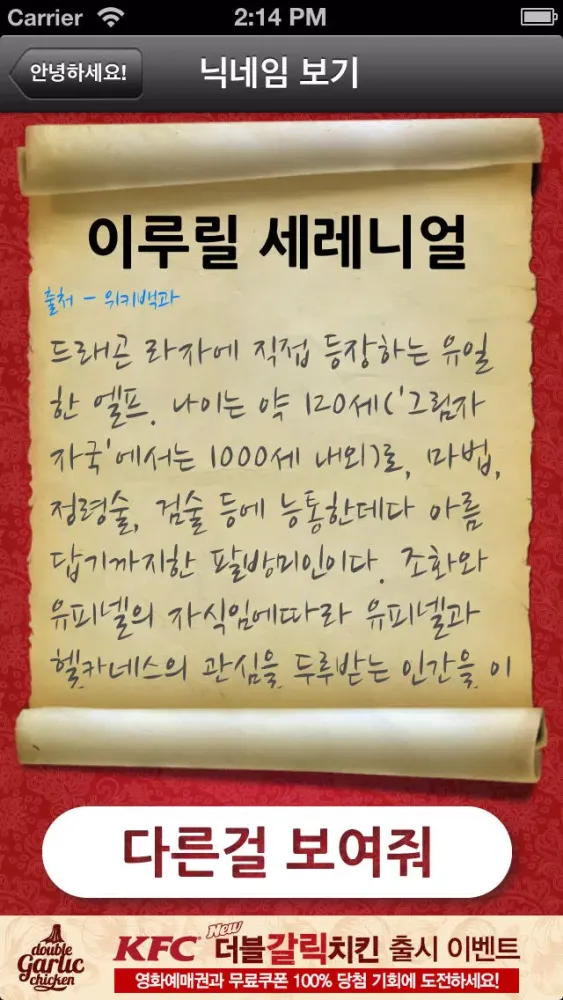 Carrier 2:14 PM
안녕하세요! 닉네임 보기
이루릴 세레니얼
출처 - 위키백과
드래곤 라자에 직접 등장하는 유일
한 엘프. 나이는 약 120세('그림자
자국'에서는 1000세 내외)로, 마법,
정령술, 검술 등에 능통한데다 아름
답기까지한 팔방미인이다. 조화와
유피넬의 자식임에따라 유피넬과
헬카네스의 관심을 두루받는 인간을 이
다른걸 보여줘
double
Garlic
chicken
KFC New 더블갈릭치킨 출시 이벤트
영화예매권과 무료쿠폰 100% 당첨 기회에 도전하세요!